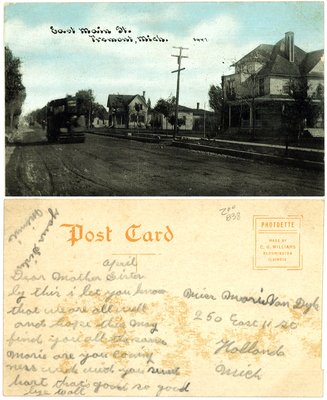 East Main St.
Fremont, Mich.
Post Card
PHOTOETTE
MADE BY
C. U. WILLIAMS
BLOOMINGTON
ILLINOIS
April
Dear Mother Sister
by this i let you know
that we are all well
and hope this may
find you all the same
Marie are you coming
next week and you send
hart that's good so good
Miss Marie Van Dyk
250 East 11 st
Holland
Mich